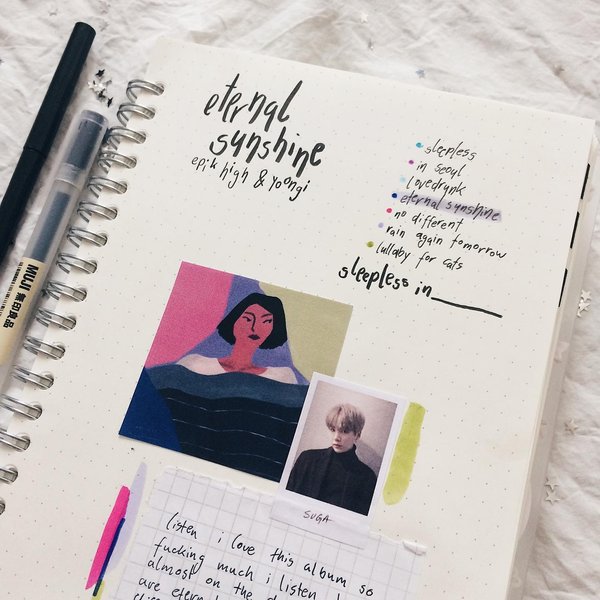 eternal
sunshine
epik high & yoongi
sleepless
in seoul
lovedrunk
eternal sunshine
no different
rain again tomorrow
lullaby for cats
sleepless in
MUJI 無印良品
SUGA
listen i love this album so
fucking much i listen
almost on the
are eternal